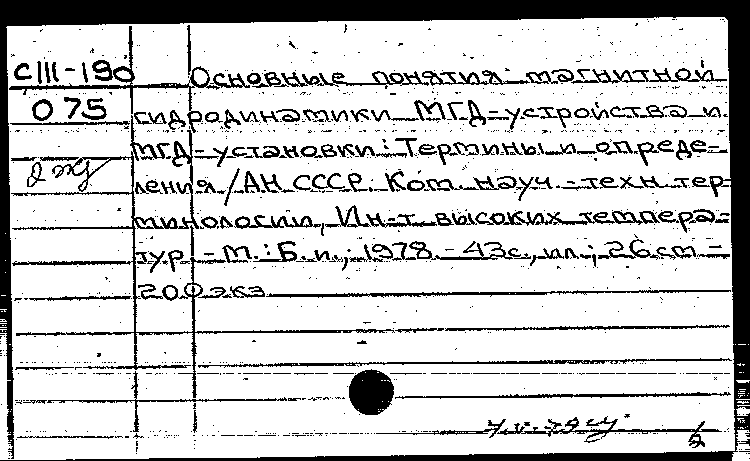 СIII-190
О75
Основные понятия магнитной
гидродинамики МГД-устройства и
МГД-установки: Термины и опреде-
ления / АН СССР. Ком. науч.-техн. тер-
минологии, Ин-т высоких темпера-
тур. - М.: Б.и., 1978. - 43с., ил.; 26 см -
200 экз